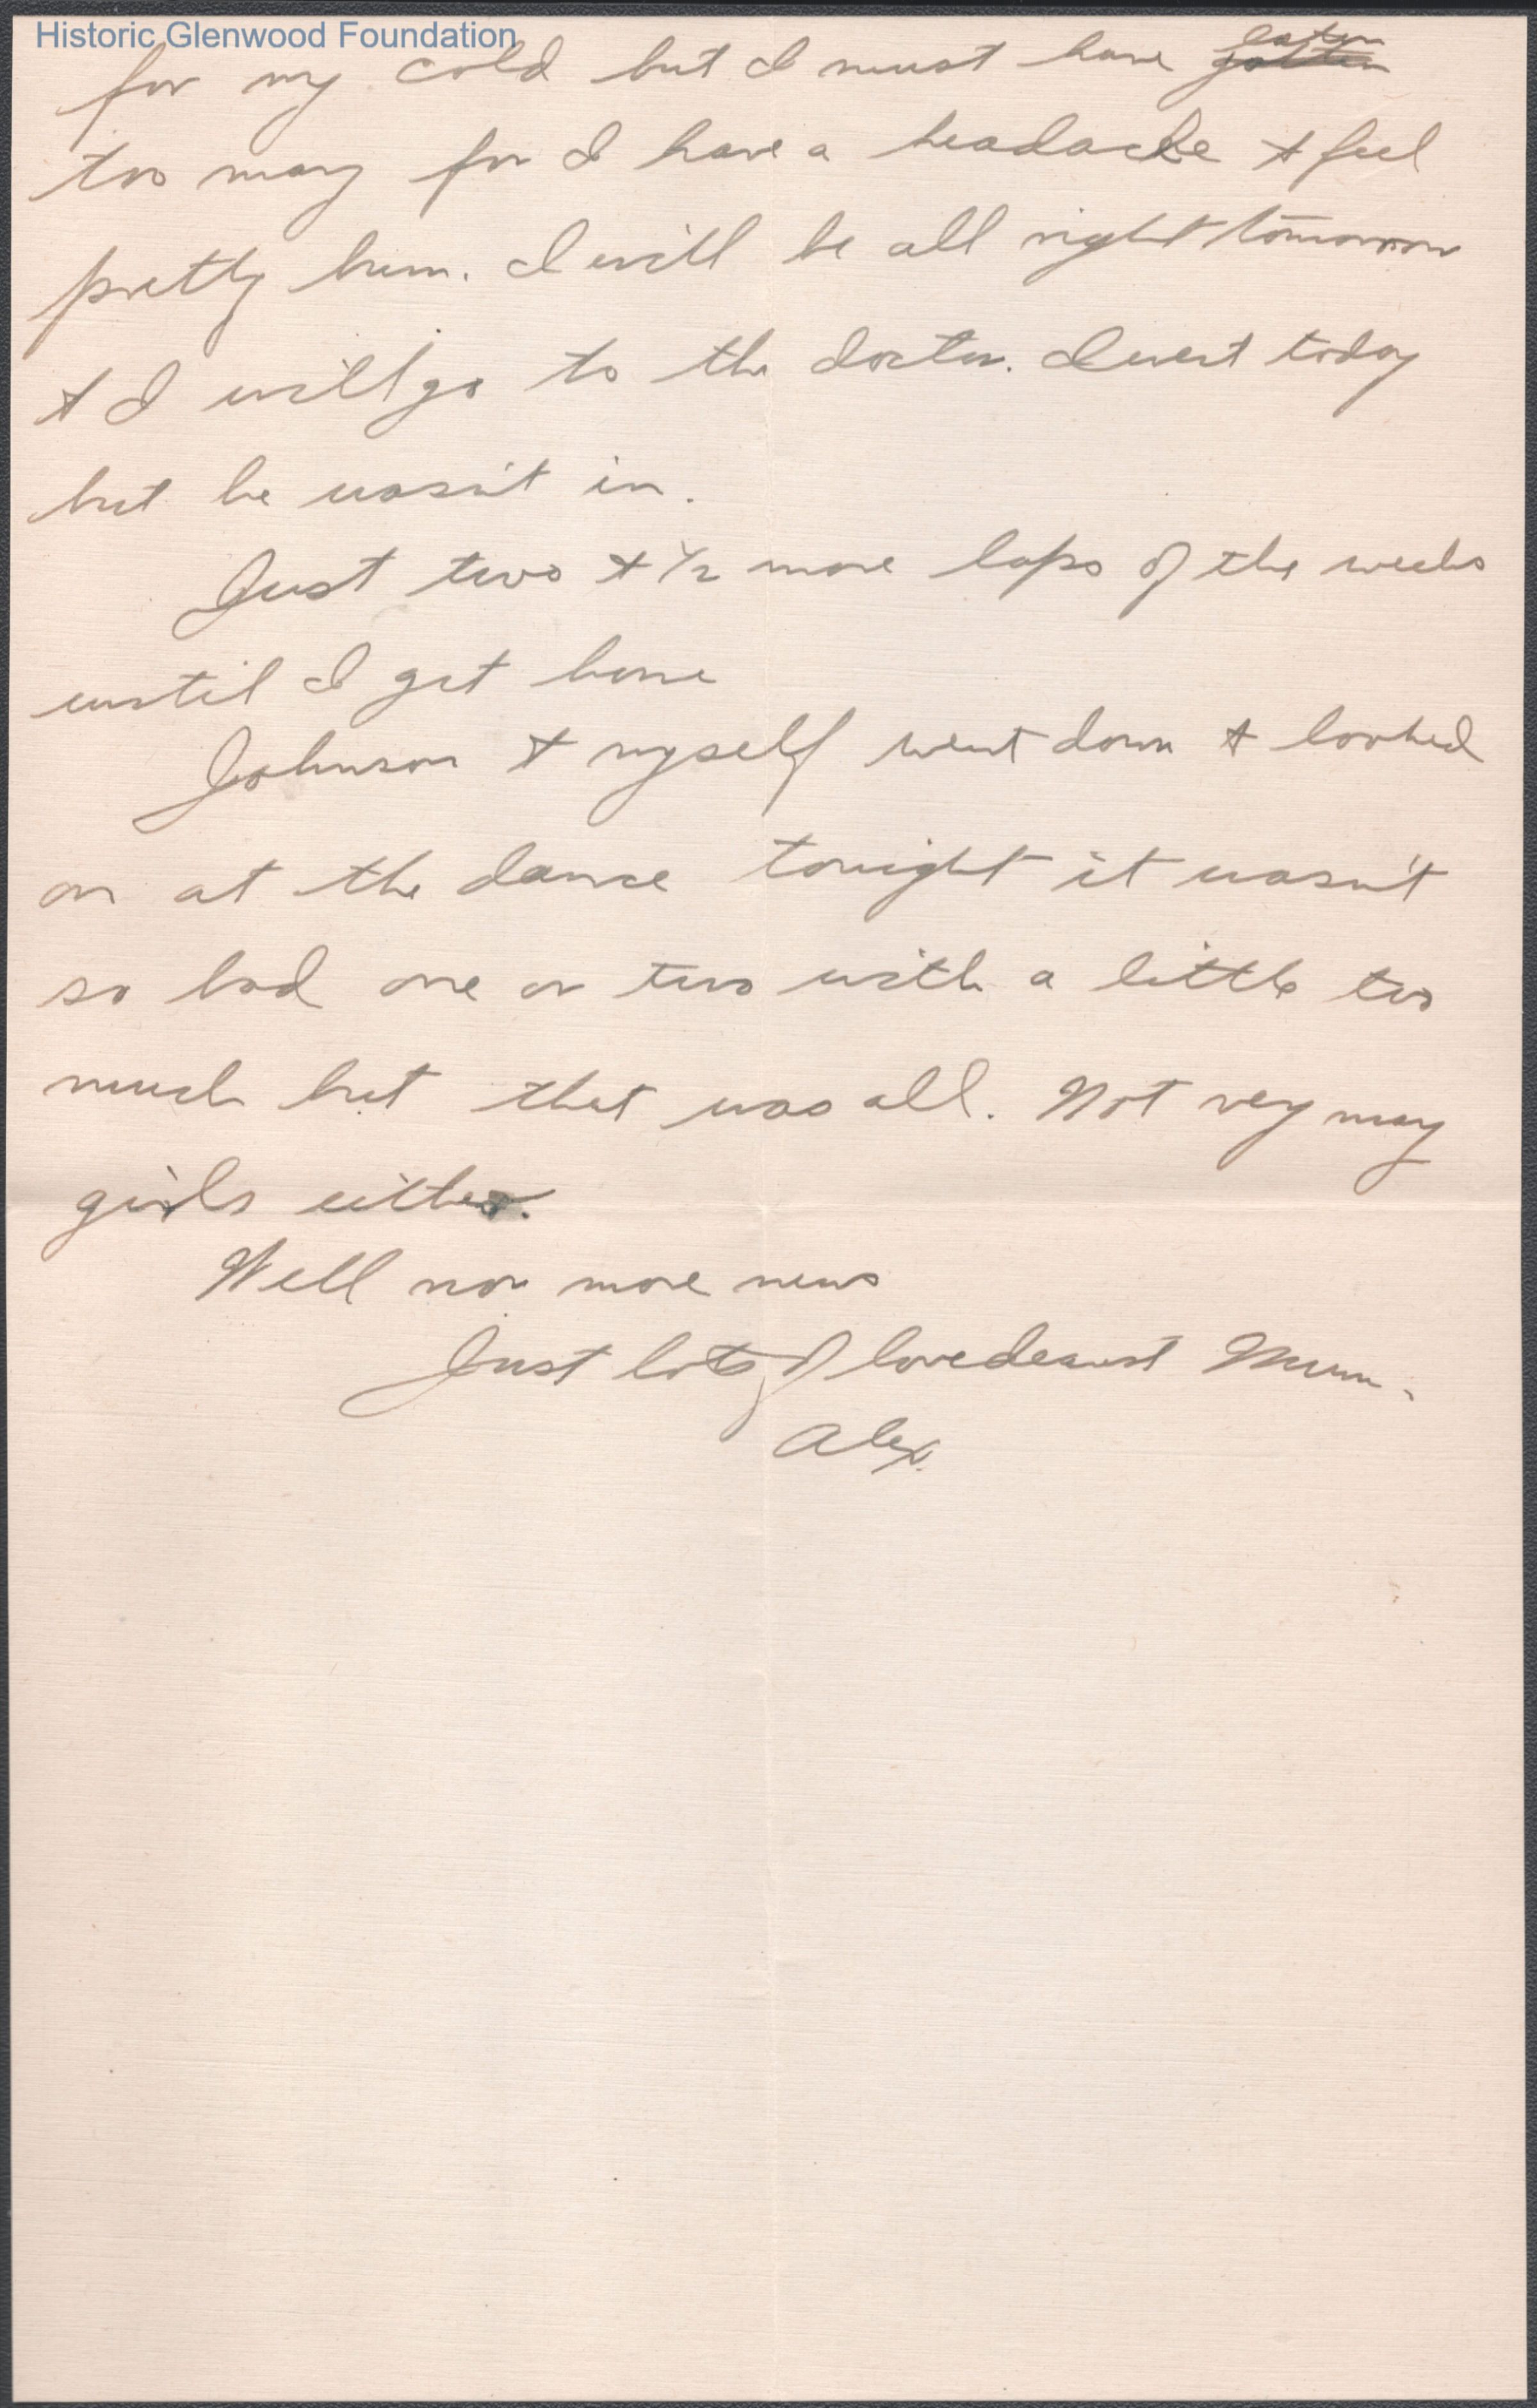 Historic Glenwood Foundation
for my cold but I must have eaten gotten
too many for I have a headache & feel
pretty bum. I will be all right tomorrow
& I will go to the doctor. I went today
but he wasn't in.
Just two & 1/2 more laps of the weeks
until I get home
Johnson & myself went down & looked
on at the dance tonight it wasn't
so bad one or two with a little too
much but that was all. Not very many
girls either.
Well no more news
Just lots of love dearest Mum.
Alex.